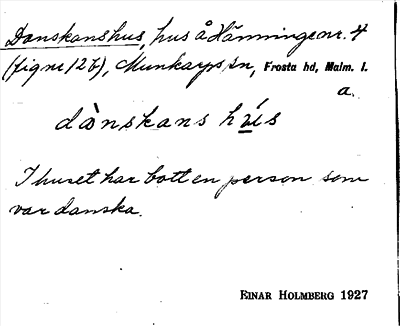 Danskanshus, hus å Hänninge nr. 4
(fig nr 126), Munkarps sn, Frosta hd, Malm. l.
a.
dànskans hús
I huset har bott en person som
var danska.
EINAR HOLMBERG 1927